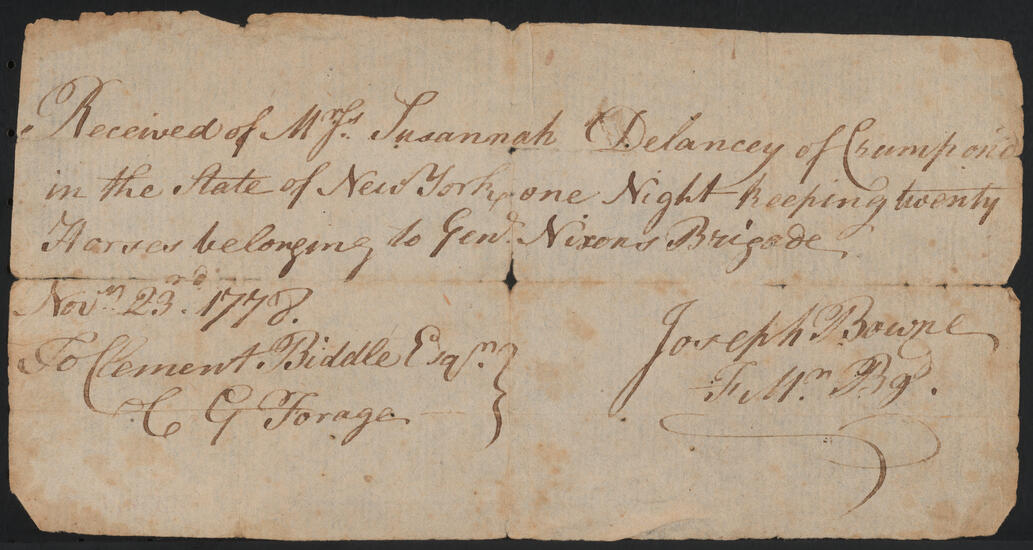 Received of Mrs. Susannah Delancey of Crumpond
in the State of New York, one Night keeping twenty
Horses belonging to Genl. Nixons Brigade
Novr. 23rd. 1778.
To Clement Biddle Esqr.
C G Forage
Joseph Bowne
F. Mr. Bgd.